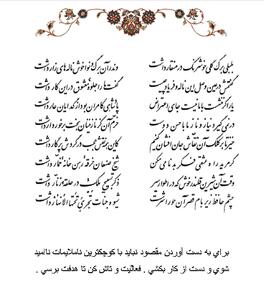 بلبلی برگ گلی خوشرنگ در منقار داشت
وندر آن برگ و نوا خوش ناله‌های زار داشت
گفتمش در عین وصل این ناله و فریاد چیست
گفت ما را جلوه معشوق در این کار داشت
یار اگر ننشست با ما نیست جای اعتراض
پادشاهی کامران بود از گدایان عار داشت
در نمی‌گیرد نیاز و ناز ما با حسن دوست
خرم آن کز نازنینان بخت برخوردار داشت
خیز تا بر کلک آن نقاش جان افشان کنیم
کاین همه نقش عجب در گردش پرگار داشت
گر مرید راه عشقی فکر بدنامی مکن
شیخ صنعان خرقه رهن خانه خمار داشت
وقت آن شیرین قلندر خوش که در اطوار سیر
ذکر تسبیح ملک در حلقه زنار داشت
چشم حافظ زیر بام قصر آن حوری سرشت
شیوه جنات تجری تحتها الانهار داشت
براي به دست آوردن مقصود نبايد با كوچكترين داملائيمات نااميد
شوي و دست از كار بكشي . فعاليت و تلاش كن تا هدفت برسي .